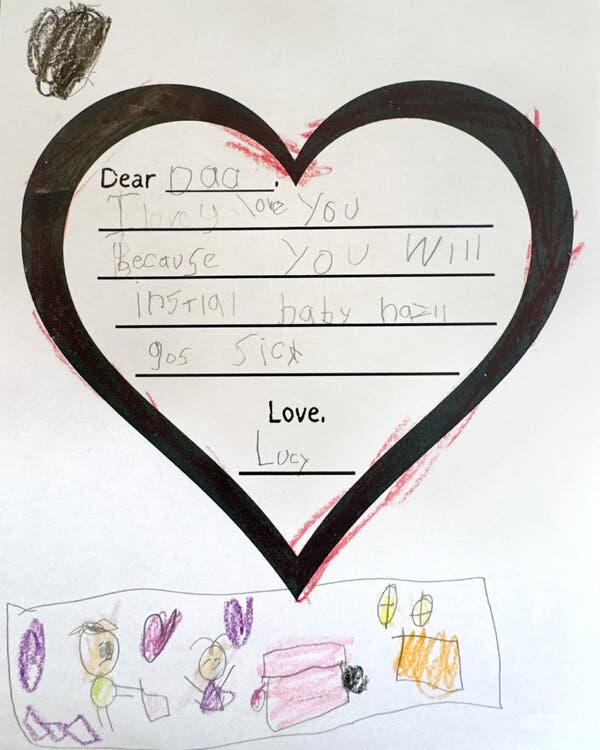 Dear Daa,
I love y love you
Because you will
instial baby hazll
gos sick
Love,
Lucy